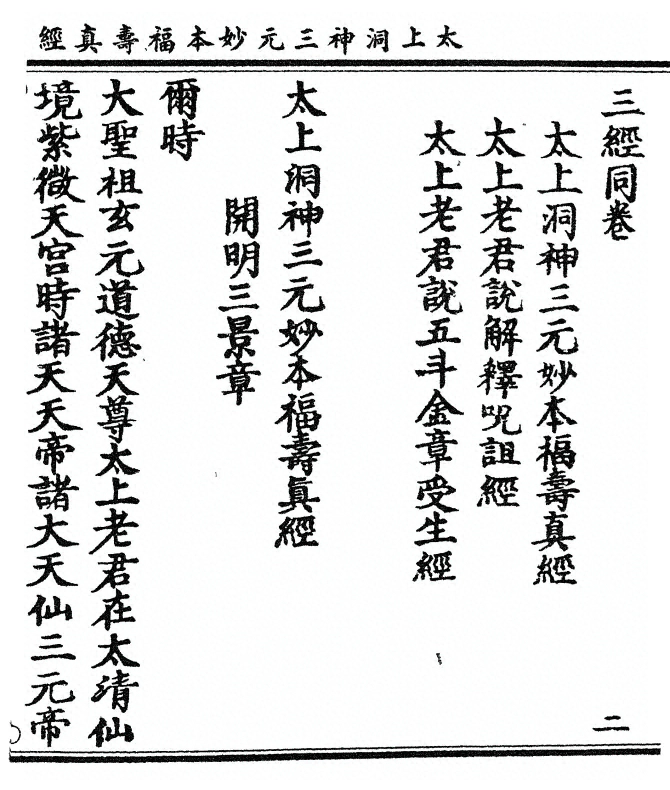 太上洞神三元妙本福壽真經
三經同卷
太上洞神三元妙本福壽真經
太上老君說解釋呪詛經
太上老君說五斗金章受生經
二
太上洞神三元妙本福壽眞經
開明三景章
爾時
大聖祖玄元道德天尊太上老君在太清仙
境紫微天宮時諸天天帝諸大天仙三元帝